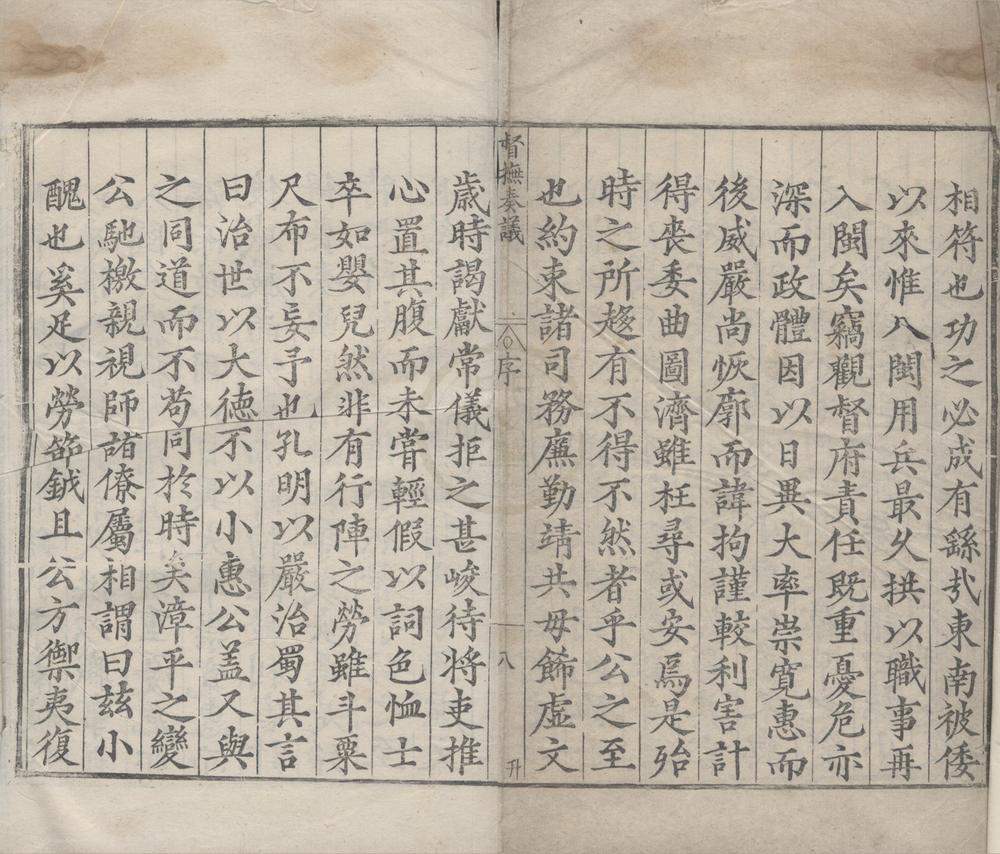 相符也功之必成有繇㢤東南被倭
以來惟八閩用兵最久拱以職事再
入閩矣竊觀督府責任既重憂危亦
深而政體因以日異大率崇寛惠而
後威嚴尚恢廓而諱拘謹較利害計
得丧委曲圖濟雖枉尋或安焉是殆
時之所趍有不得不然者乎公之至
也約束諸司務亷勤靖共毋飾虛文
督撫奏議
序
八
升
歳時謁獻常儀拒之甚峻待將吏推
心置其腹而未嘗輕假以詞色恤士
卒如嬰兒然非有行陣之勞雖斗粟
尺布不妄予也孔明以嚴治蜀其言
曰治世以大徳不以小惠公盖又與
之同道而不苟同於時矣漳平之變
公馳檄親視師諸僚屬相謂曰兹小
醜也奚足以勞節鉞且公方禦夷復